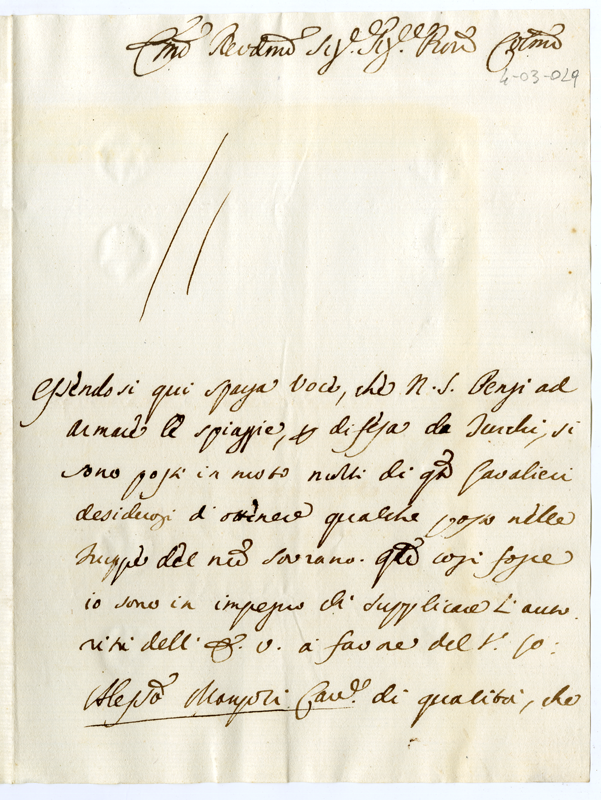 Em̃o Revd̃mo Sig.r Sig.r Pron̄ Colm̄o
4-03-029
Essendosi qui sparsa voce, che N. S. Pensi ad
armare le spiaggie, p difesa da Turchi, si
sono posti in moto molti di qti Cavalieri
desiderosi d'ottenere qualche posto nelle
Truppe del nrõ Sovrano. qdo cosi fosse
io sono in impegno di supplicare l'auto
rità dell' E. V. a favore del S.
Alessõ Cav.e di qualità, che